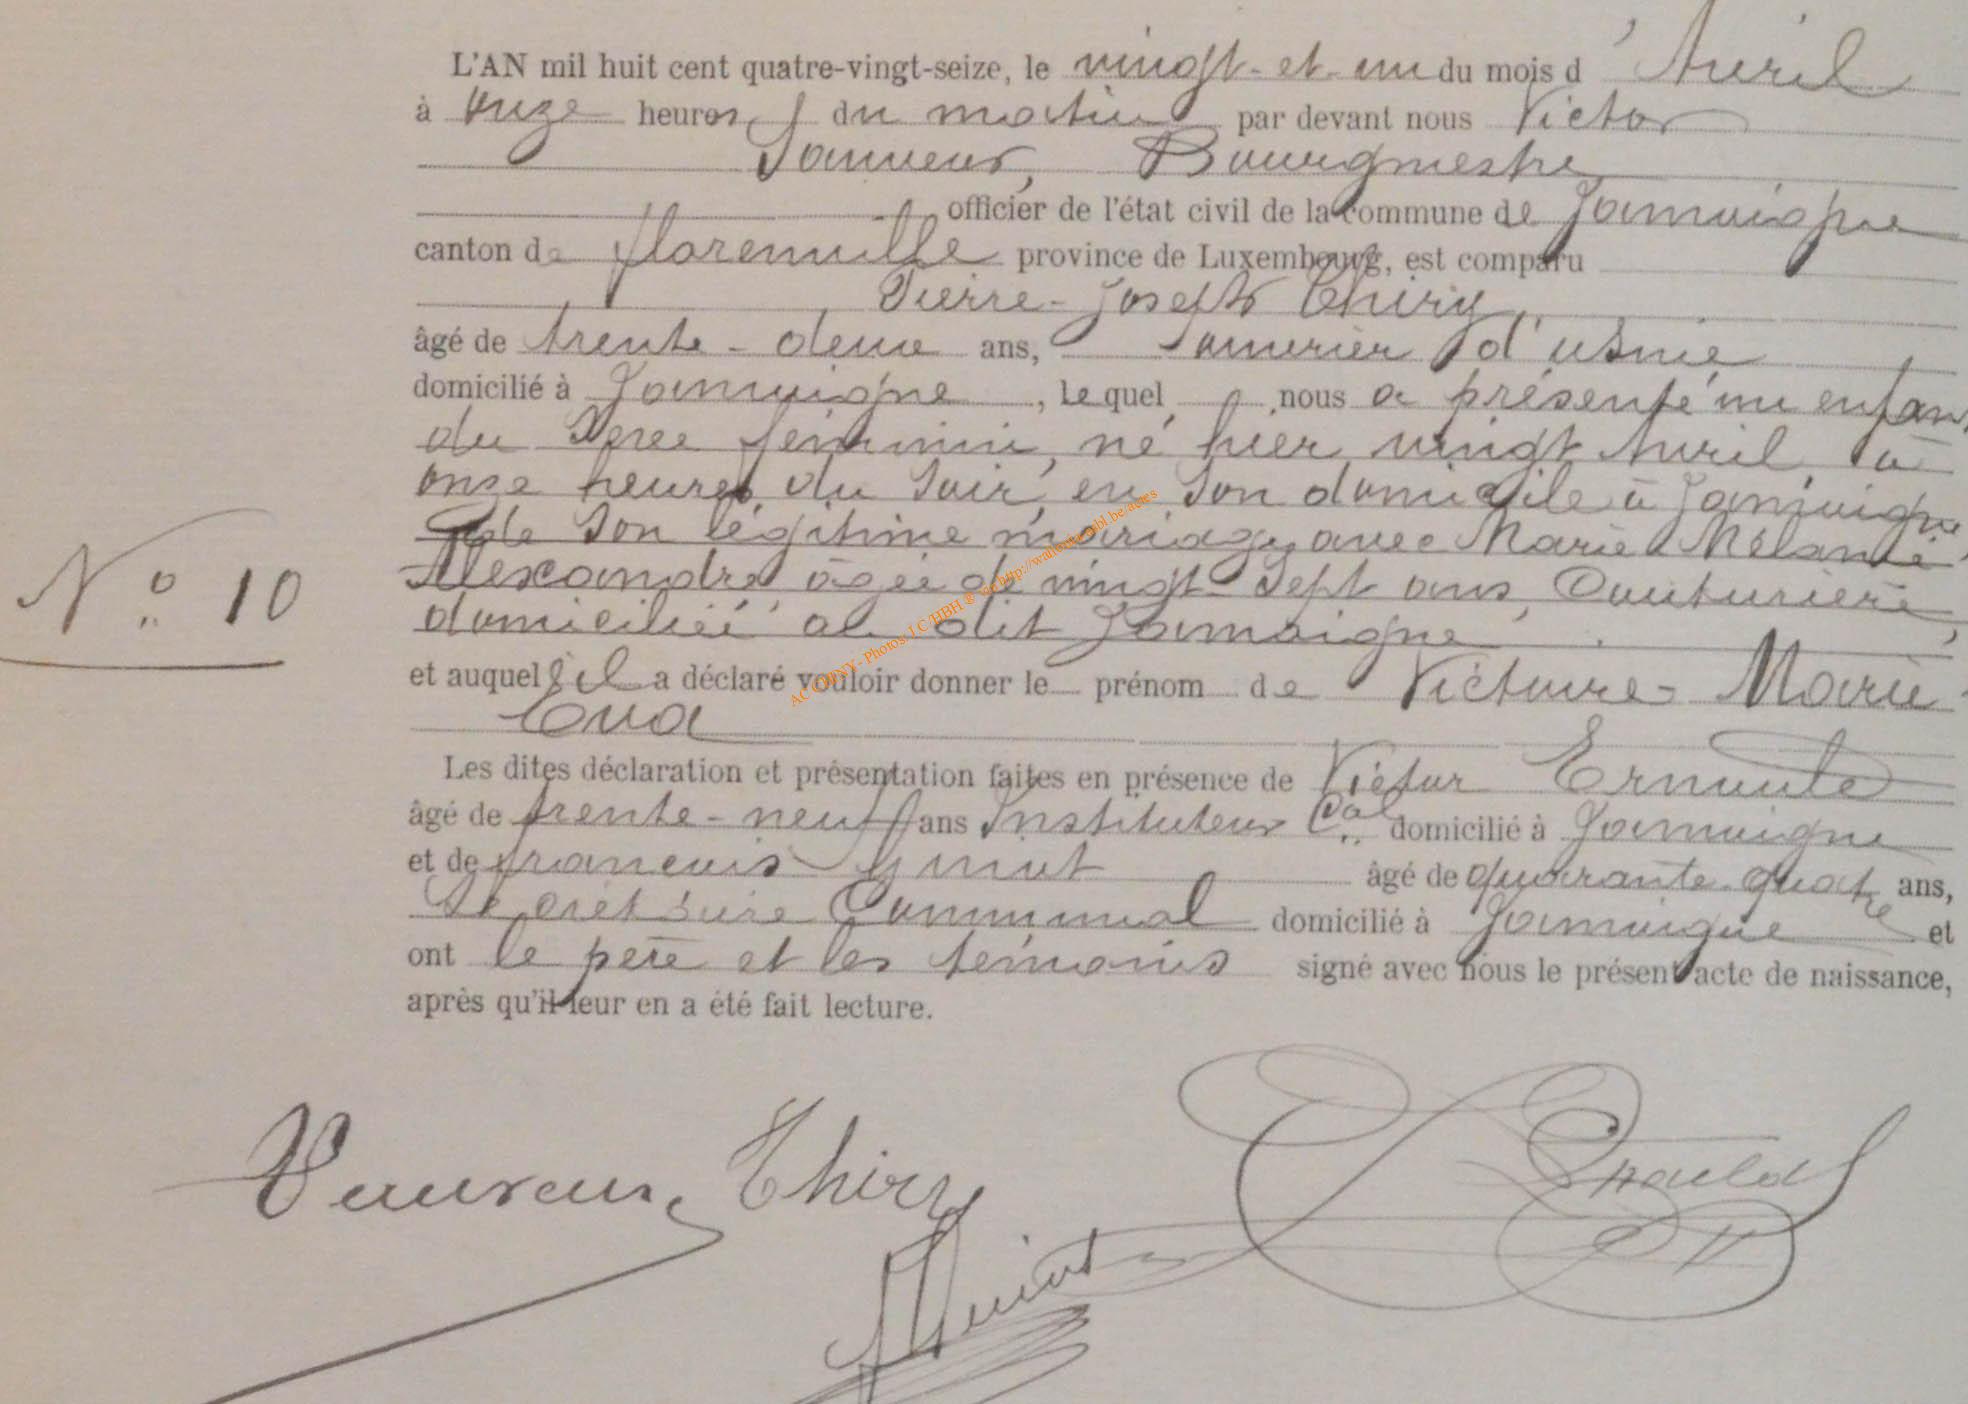 L'AN mil huit cent quatre-vingt-seize, le vingt-et-un du mois d'Avril
à onze heures du matin par devant nous Victor
Sauveur, Bourgmestre
officier de l'état civil de la commune de Jamoigne
canton de florenville province de Luxembourg, est comparu
Pierre-Joseph Thiry,
âgé de trente-deux ans, ouvrier d'usine
domicilié à Jamoigne, le quel nous a présenté un enfant
du Sexe féminin, né hier vingt Avril à
onze heures du soir, en son domicile à Jamoigne
de son légitime mariage avec Marie Mélanie
Alexandre âgée de vingt-sept ans, Couturière,
N° 10
domiciliée au dit Jamoigne
et auquel il a déclaré vouloir donner le prénom de Victoire-Marie-
Eva
Les dites déclaration et présentation faites en présence de Victor
âgé de trente-neuf ans Instituteur Cal domicilié à Jamoigne
et de francois âgé de quarante-quatre ans,
Secrétaire Communal domicilié à Jamoigne et
ont le père et les témoins signé avec nous le présent acte de naissance,
après qu'il leur en a été fait lecture.
Thiry